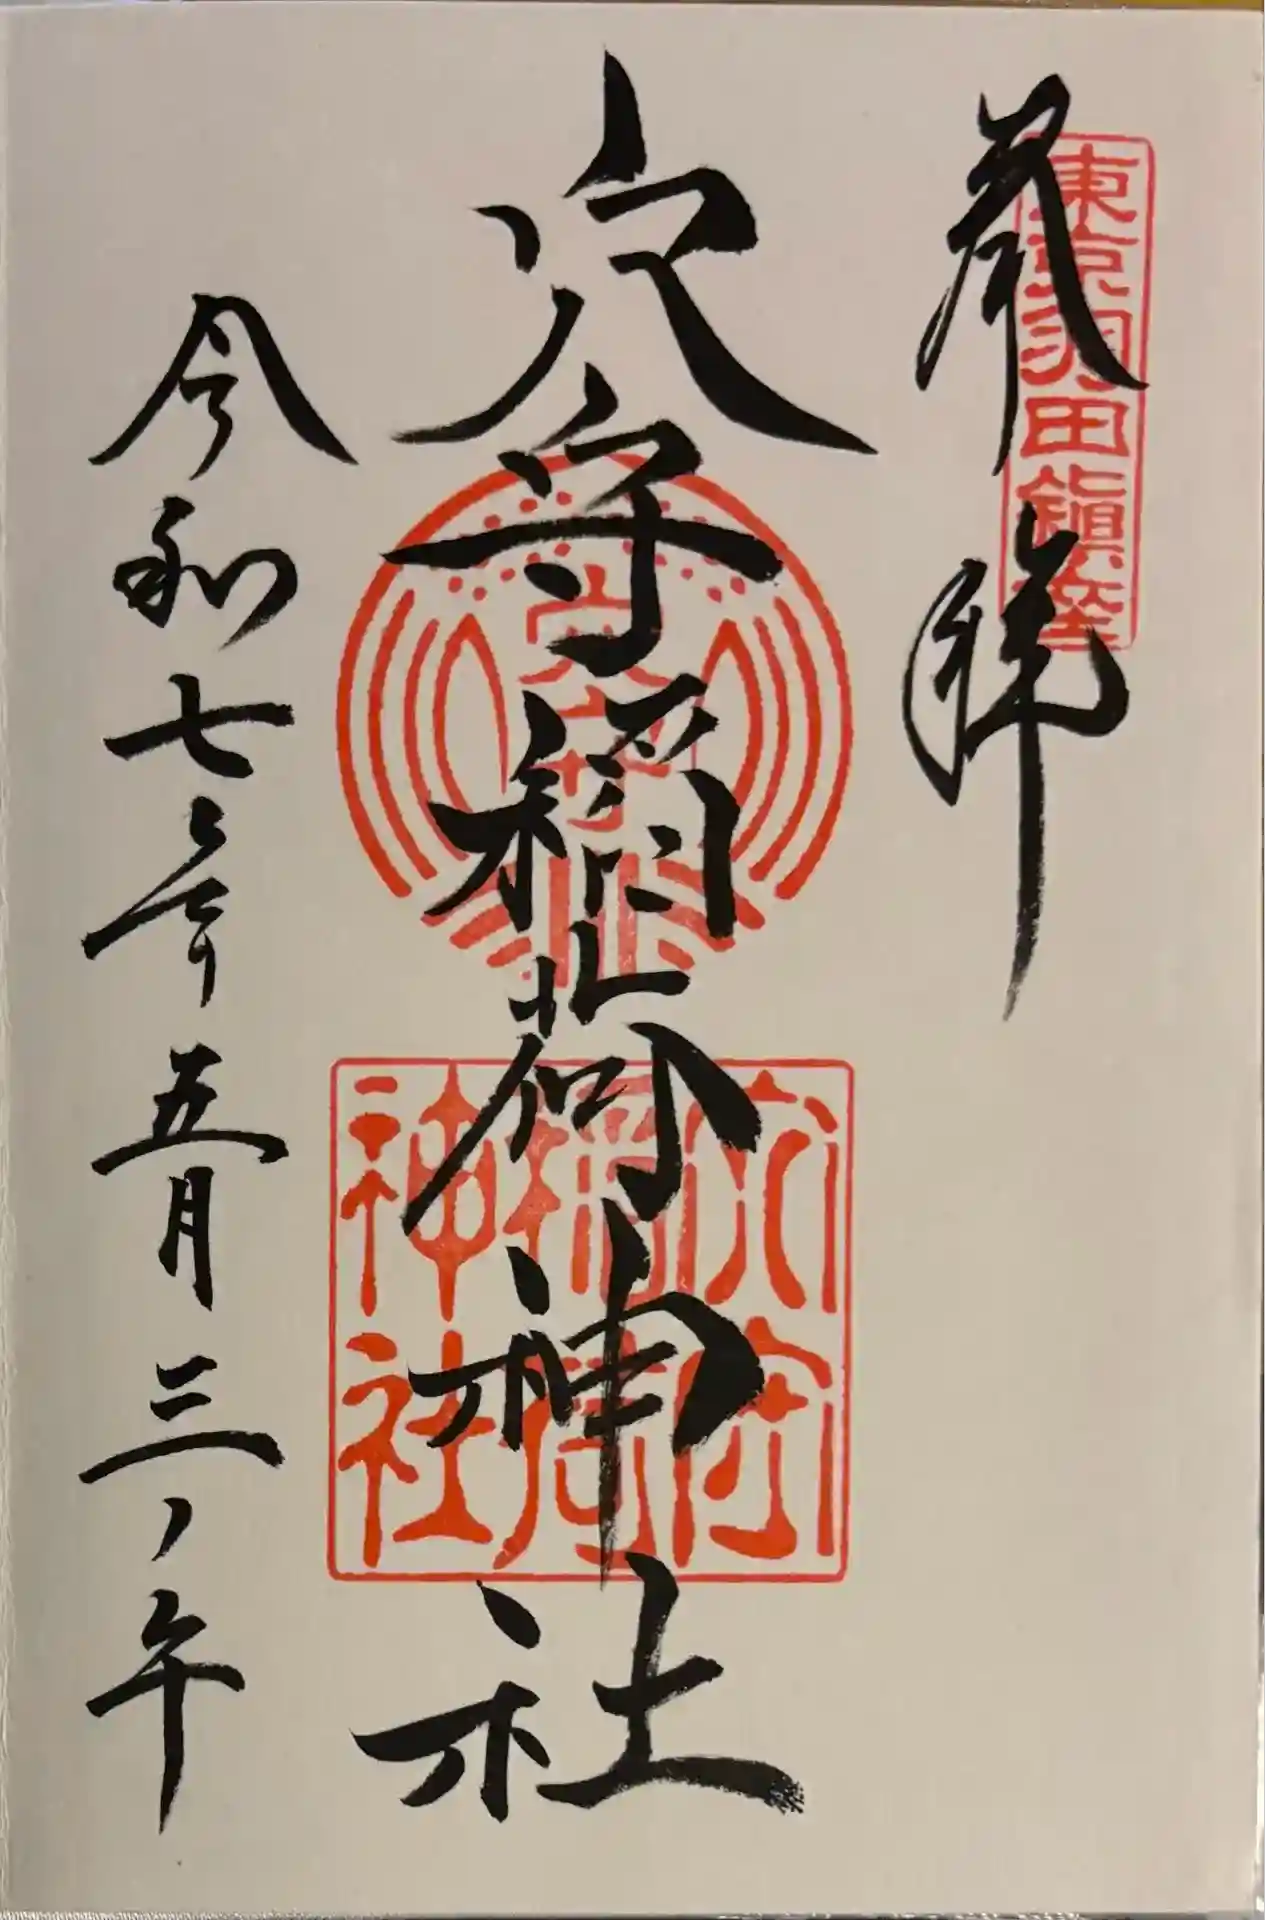 奉拝
東京羽田鎮座
穴守稲荷神社
穴守
穴守
稲荷
神社
令和七年五月三ノ午